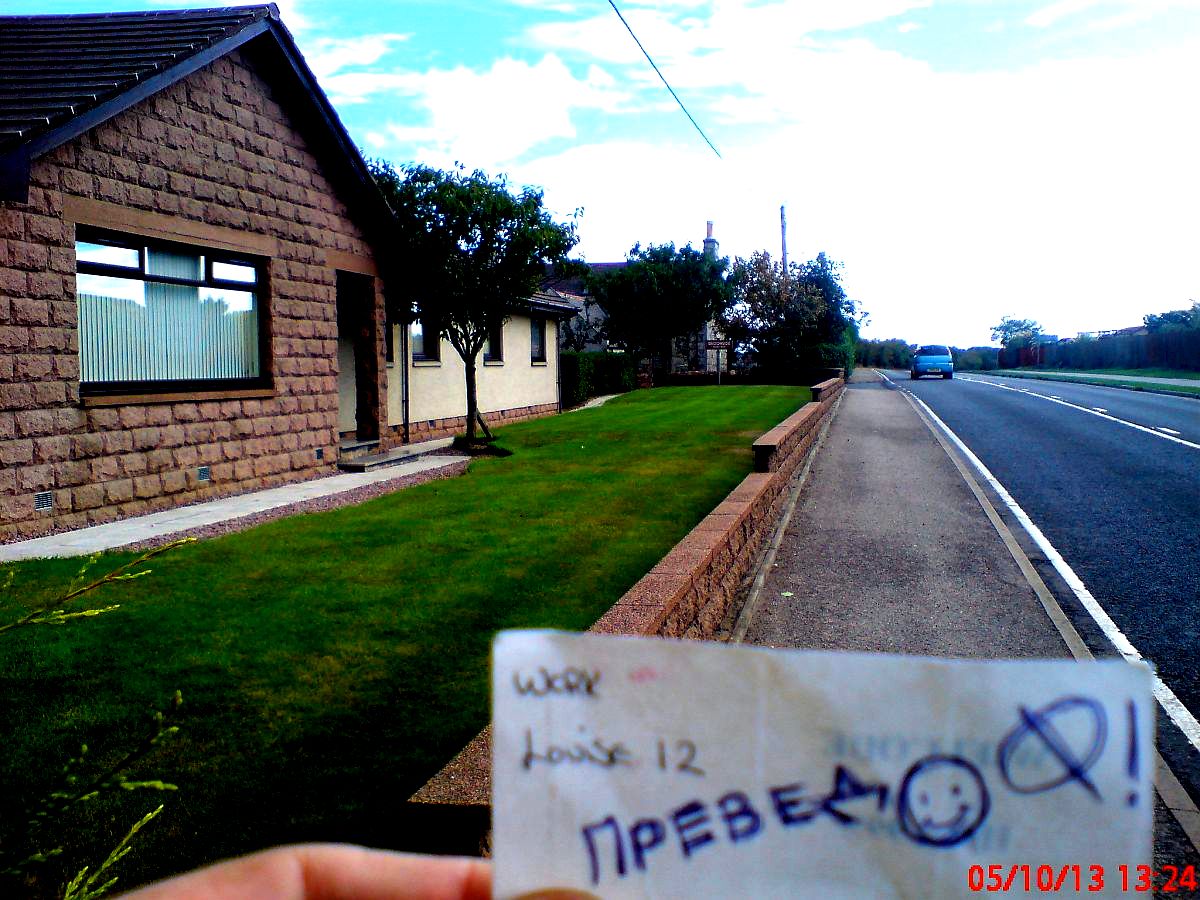 Work
Louise 12
ПРЕВЕД
!
05/10/13 13:24